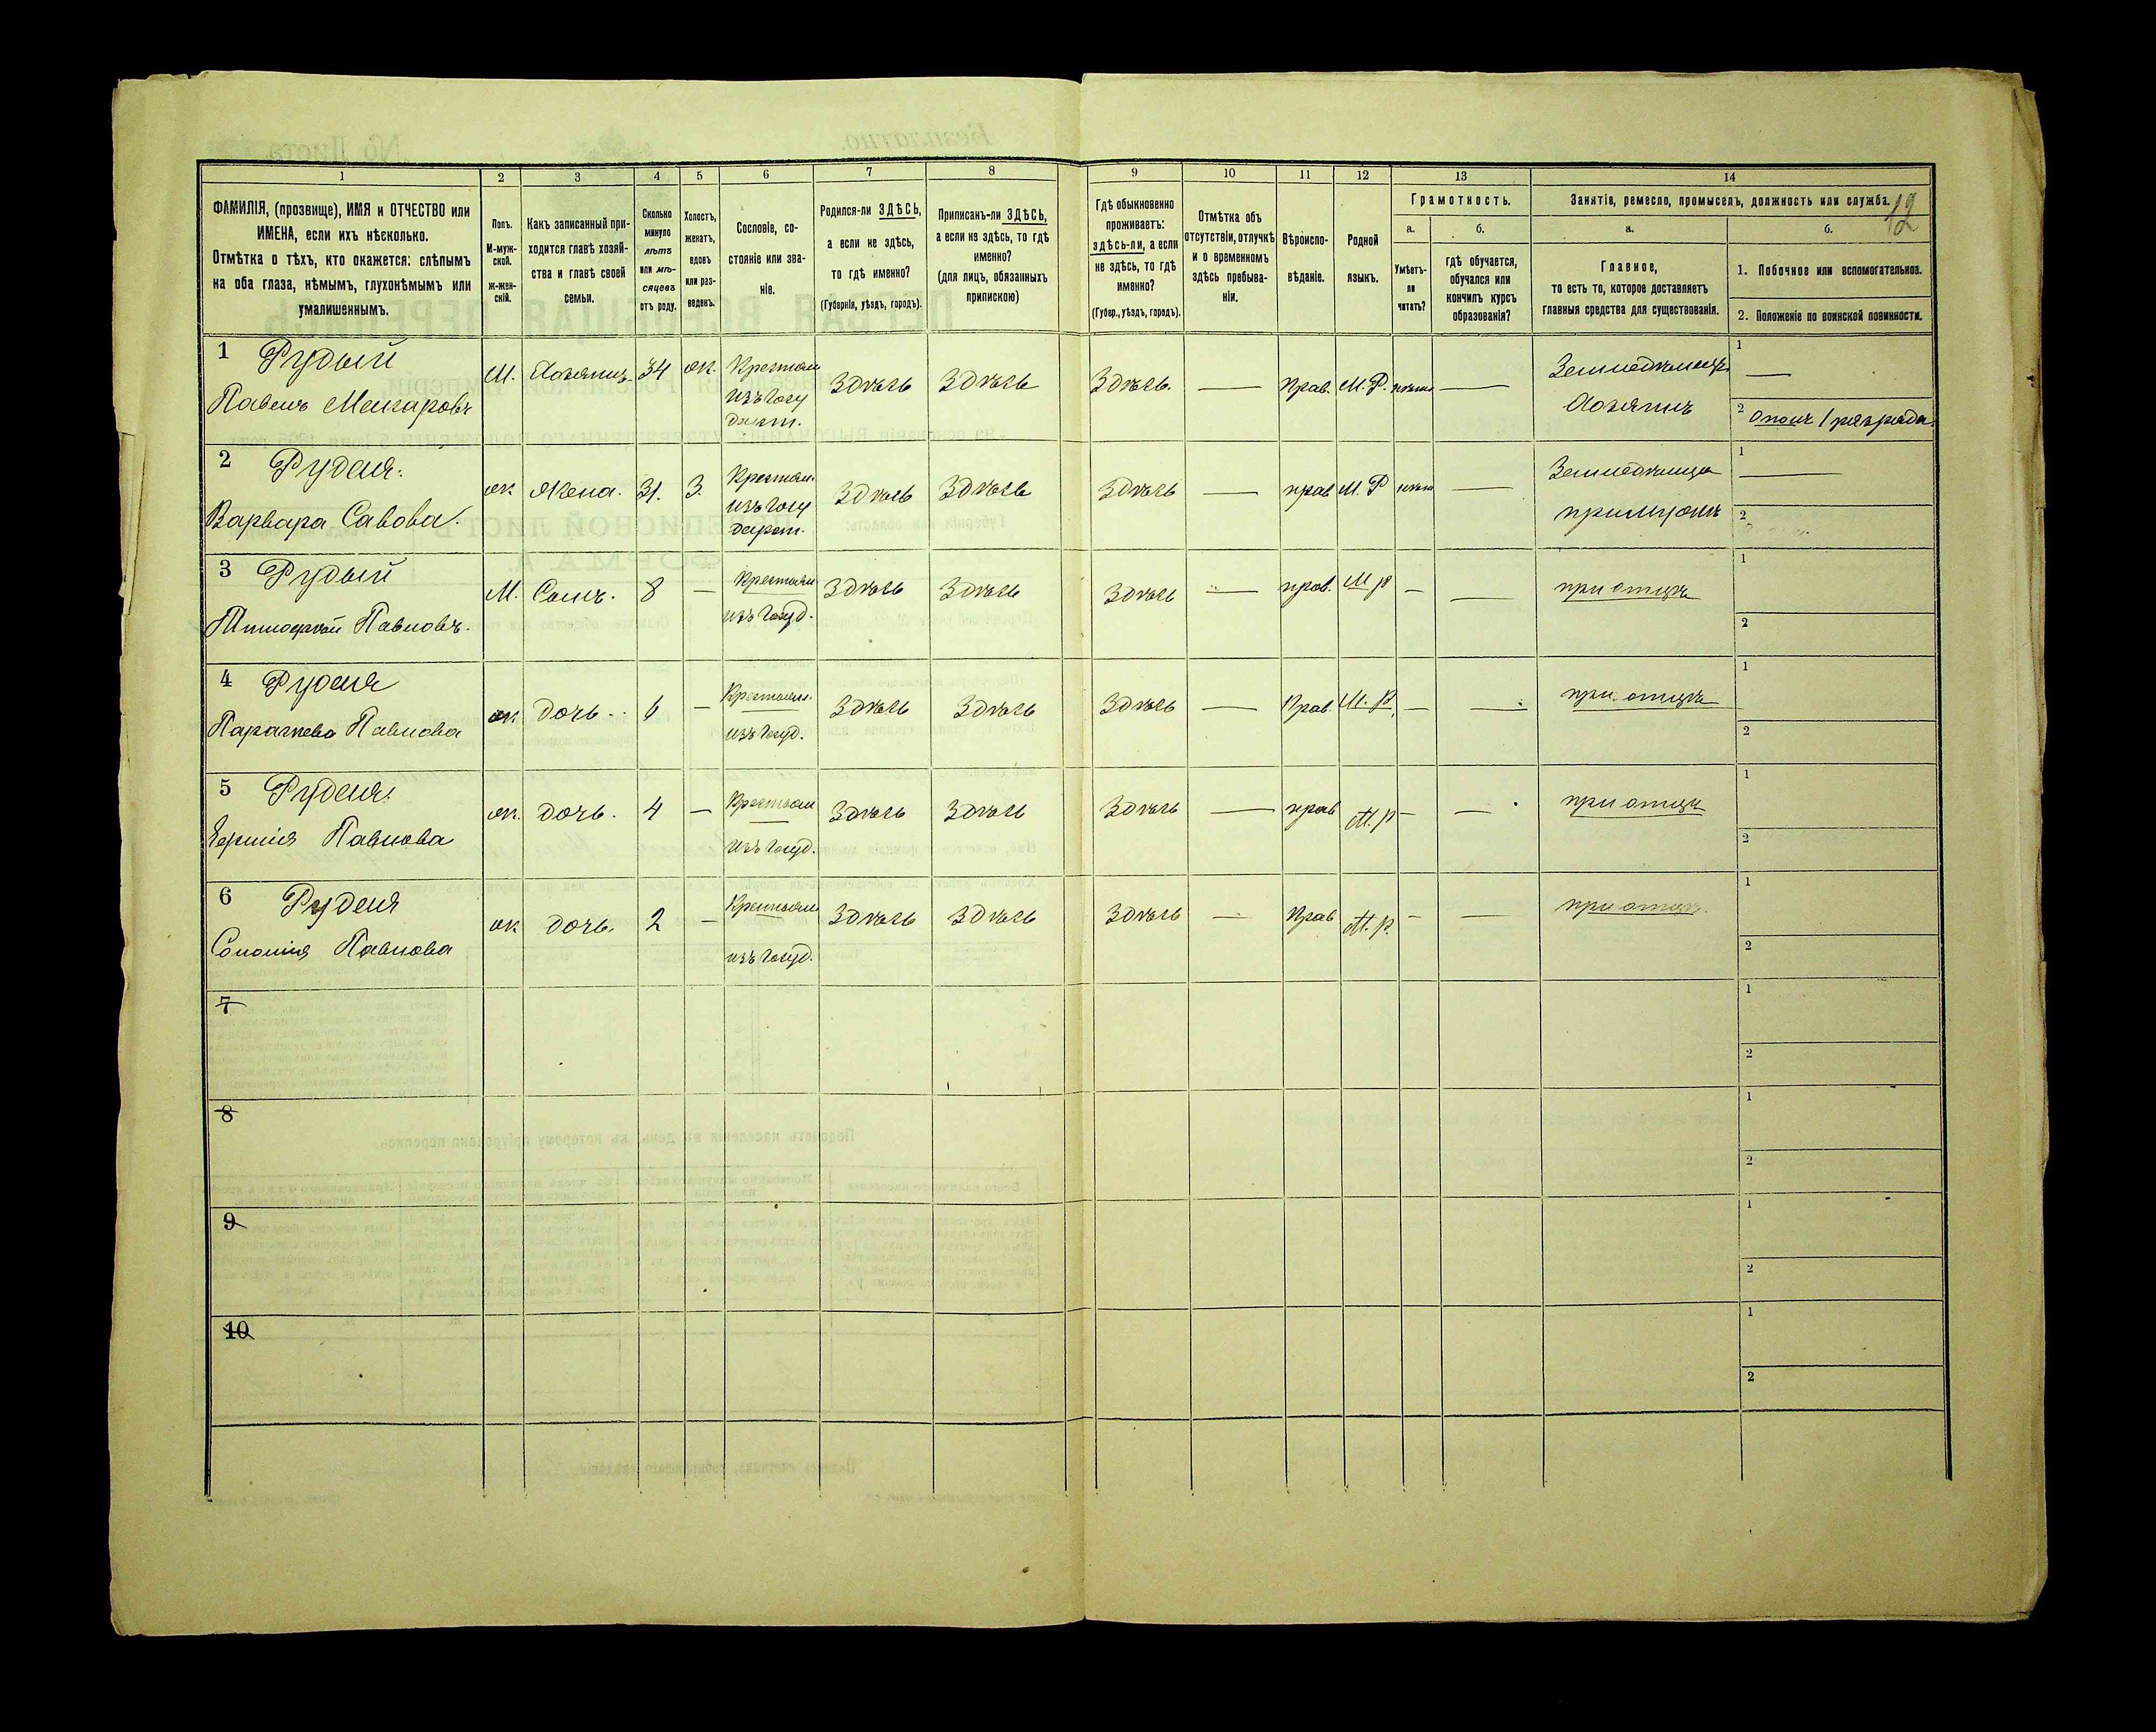 12
1 2 3 4 5 6 7 8 9 10 11 12 13 14
ФАМИЛІЯ, (прозвище), ИМЯ и ОТЧЕСТВО или
ИМЕНА, если ихъ нѣсколько.
Отмѣтка о тѣхъ, кто окажется: слѣпымъ
на оба глаза, нѣмымъ, глухонѣмымъ или
умалишеннымъ.
Полъ.
М-муж-
ской.
ж-жен-
скій.
Какъ записанный при-
ходится главѣ хозяй-
ства и главѣ своей
семьи.
Сколько
минуло
лѣтъ
или мѣ-
сяцевъ
отъ роду.
Холостъ,
женатъ,
вдовъ
или раз-
веденъ.
Сословіе, со-
стояніе или зва-
ніе.
Родился-ли ЗДѢСЬ,
а если не здѣсь,
то гдѣ именно?
(Губернія, уѣздъ, городъ).
Приписанъ-ли ЗДѢСЬ,
а если не здѣсь, то гдѣ
именно?
(для лицъ, обязанныхъ
припискою)
Гдѣ обыкновенно
проживаетъ:
здѣсь-ли, а если
не здѣсь, то гдѣ
именно?
(Губер., уѣздъ, городъ).
Отмѣтка объ
отсутствіи, отлучкѣ
и о временномъ
здѣсь пребыва-
ніи.
Вѣроиспо-
вѣданіе.
Родной
языкъ.
Грамотность.
а.
Умѣетъ-
ли
читать?
б.
гдѣ обучается,
обучался или
кончилъ курсъ
образованія?
Занятія, ремесло, промыселъ, должность или служба.
а.
Главное,
то есть то, которое доставляетъ
главныя средства для существованія.
б.
1. Побочное или вспомогательное.
2. Положеніе по воинской повинности.
1 Рудый М. Хозяинъ 34 ж. Крестьян Здѣсь Здѣсь Здѣсь — Прав. М. Р. нѣтъ — Земледѣлецъ 1 —
Павелъ изъ Госу Хозяинъ 2 Ополч 1 разряда.
2 Рудая. ж Жена. 31. З. Крестьян. Здѣсь Здѣсь Здѣсь — прав М. Р нѣтъ — Земледѣлица 1 —
Варвара Савова. изъ Госу при мужѣ 2
дарст.
3 Рудый М. Сынъ. 8 — Крестьян Здѣсь Здѣсь Здѣсь — прав. М р — — при отцѣ 1
Тимофей Павловъ. изъ Госуд. 2
4 Рудая ж. дочь. 6 — Крестьян. Здѣсь Здѣсь Здѣсь — Прав. М. Р. — — при отцѣ 1
Параскева Павлова изъ Госуд. 2
5 Рудая. ж. дочь. 4 — Крестьян Здѣсь Здѣсь Здѣсь — прав М. р — — при отцѣ 1
Павлова изъ Госуд. 2
6 Рудая ж дочь. 2 — Крестьян Здѣсь Здѣсь Здѣсь — Прав М. р. — — при отцѣ. 1
Соломія Павлова изъ Госуд. 2
7 1
2
8 1
2
9 1
2
10 1
2